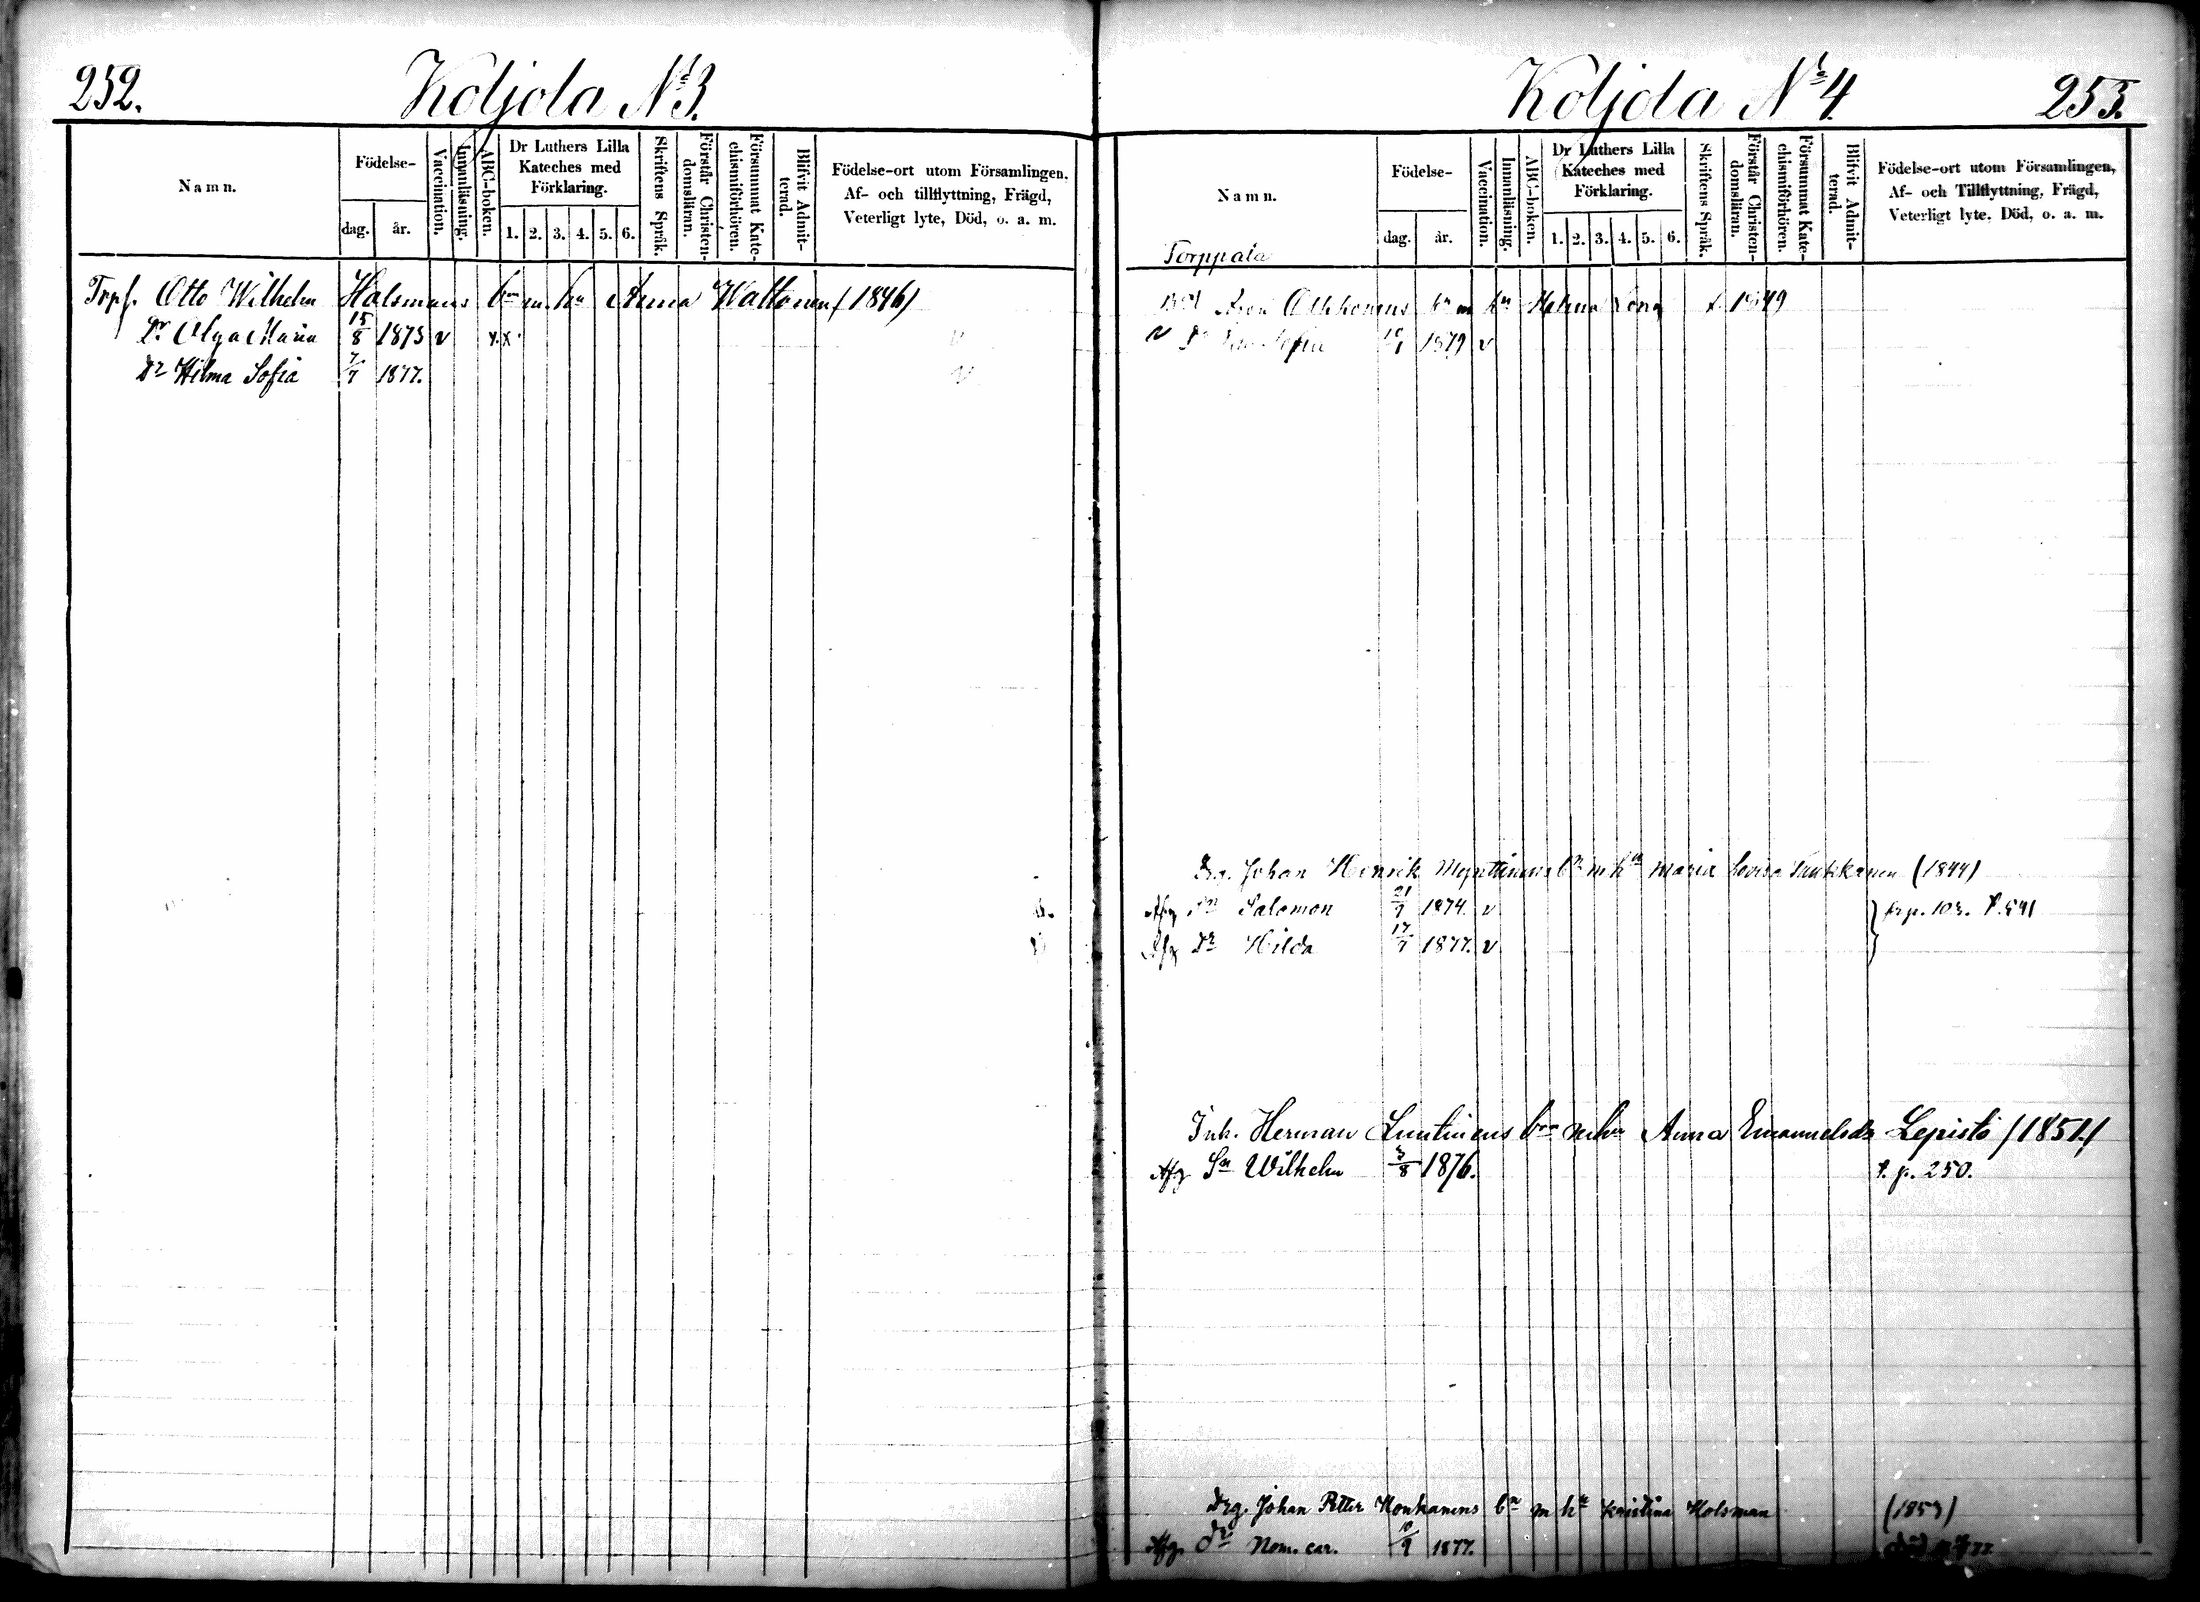 252.
Koljola No 3.
Namn.
Födelse-
dag.
år.
Vaccination.
Innanläsning.
ABC-boken.
Dr Luthers Lilla
Kateches med
Förklaring.
1. 2. 3. 4. 5. 6.
Skriftens Språk.
Förstår Christen-
domsläran.
Försummat Kate-
chismiförhören.
Blifvit Admit-
terad.
Födelse-ort utom Församlingen.
Af- och tillflyttning, Frägd,
Veterligt lyte, Död, o. a. m.
Trpf. Otto Wilhelm Holsmans bn m hu Anna Waltonen (1846)
Dr Olga Maria 15/8 1873 v x x
Dr Hilma Sofia 7/7 1877.
Koljola No 4
253.
Namn.
Födelse-
dag.
år.
Vaccination.
Innanläsning.
ABC-boken.
Dr Luthers Lilla
Kateches med
Förklaring.
1. 2. 3. 4. 5. 6.
Skriftens Språk.
Förstår Christen-
domsläran.
Försummat Kate-
chismiförhören.
Blifvit Admit-
terad.
Födelse-ort utom Församlingen,
Af- och Tillflyttning, Frägd,
Veterligt lyte, Död, o. a. m.
Torppala
Olkkonens bn m hu Helena f. 1849
v Dr Sofia 1879 v
Drg. Johan Henrik Mynttinens bn m hu Maria Lovisa (1844)
Afg Sn Salomon 21/7 1874. v frp. 103. t. 591
Afg Dr Hilda 17/7 1877. v
Inh. Herman bn m hu Anna Emanuelsdr Lepistö (1851.)
Afg Sn Wilhelm 3/8 1876. t. p. 250.
Drg. Johan Petter Honkanens bn m hu Kristina Holsman (1853)
Afg. Dr Nom. car. 10/9 1877. död